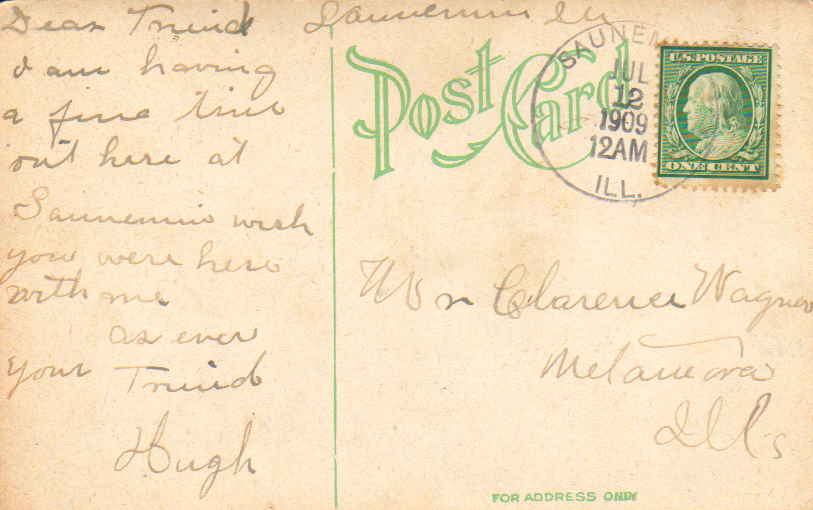 Dear Freind Saunemin Ill
I am having
a fine time
out here at
Saunemin wish
you were here
with me
as ever
your Freind
Hugh
Post Card
SAUNEM
JUL
12
1909
12AM
ILL.
U.S. POSTAGE
ONE CENT
Clarence Wagner
Metamora
Ills
FOR ADDRESS ONLY